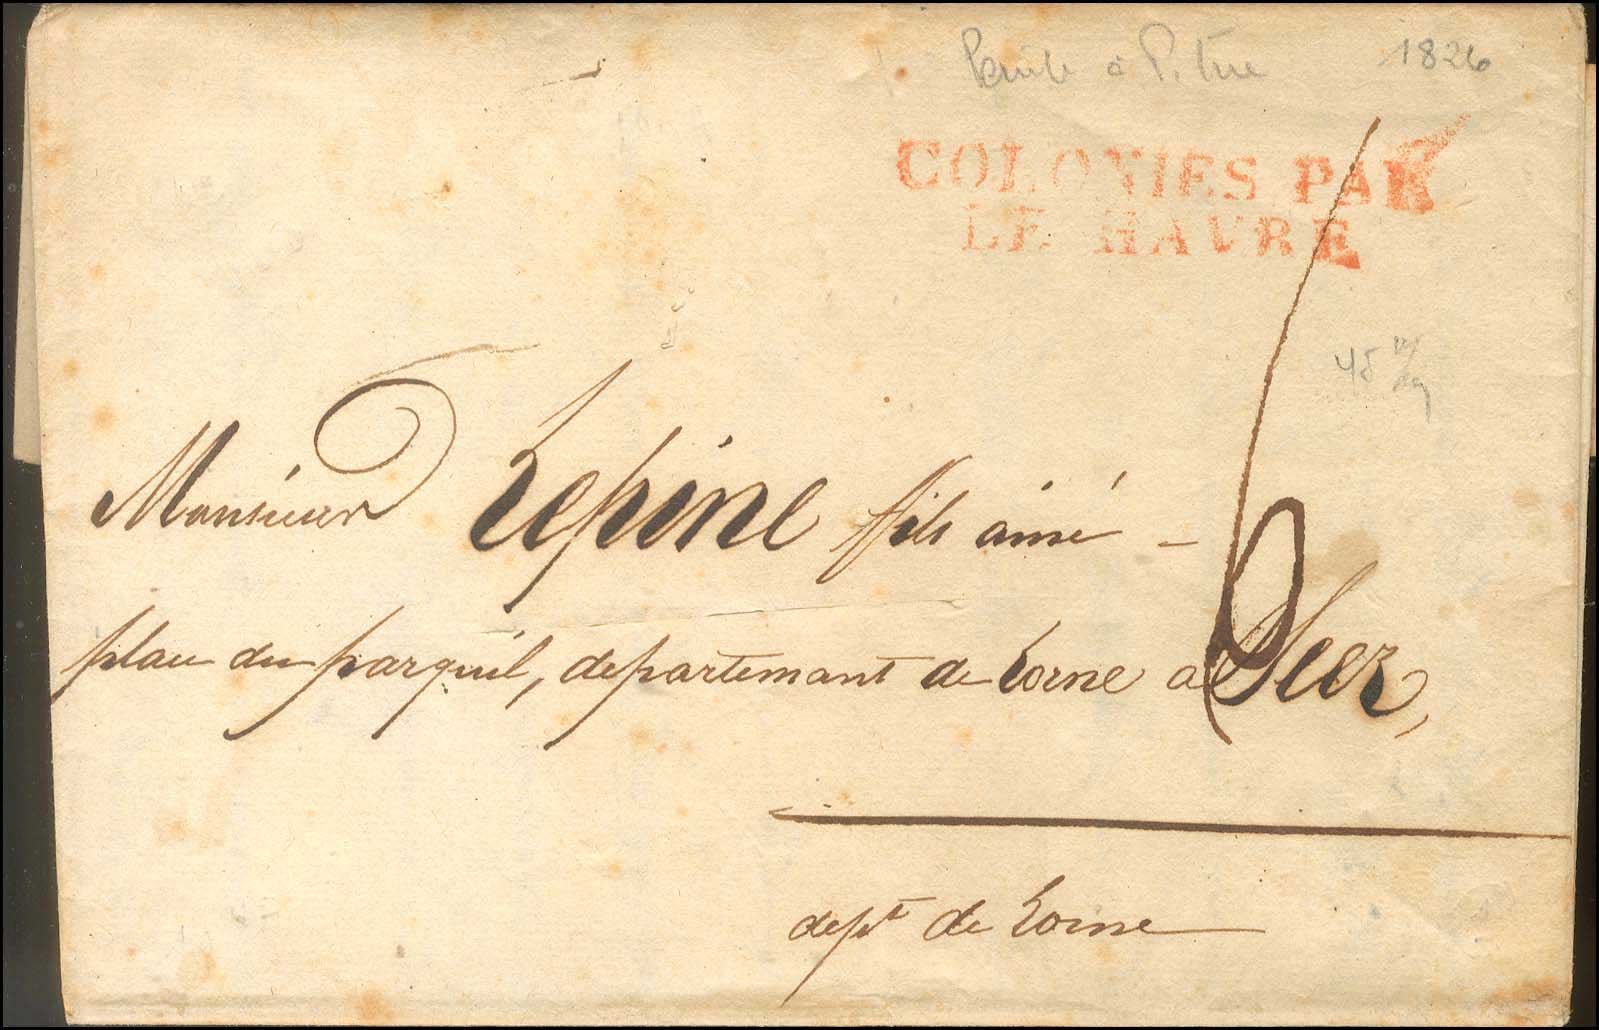 à P. tre 1826
COLONIES PAR
LE HAVRE
45
6
Monsieur Lepine fils ainé -
place du parquet, departemant de Lorne a Séez,
dept de Lorne